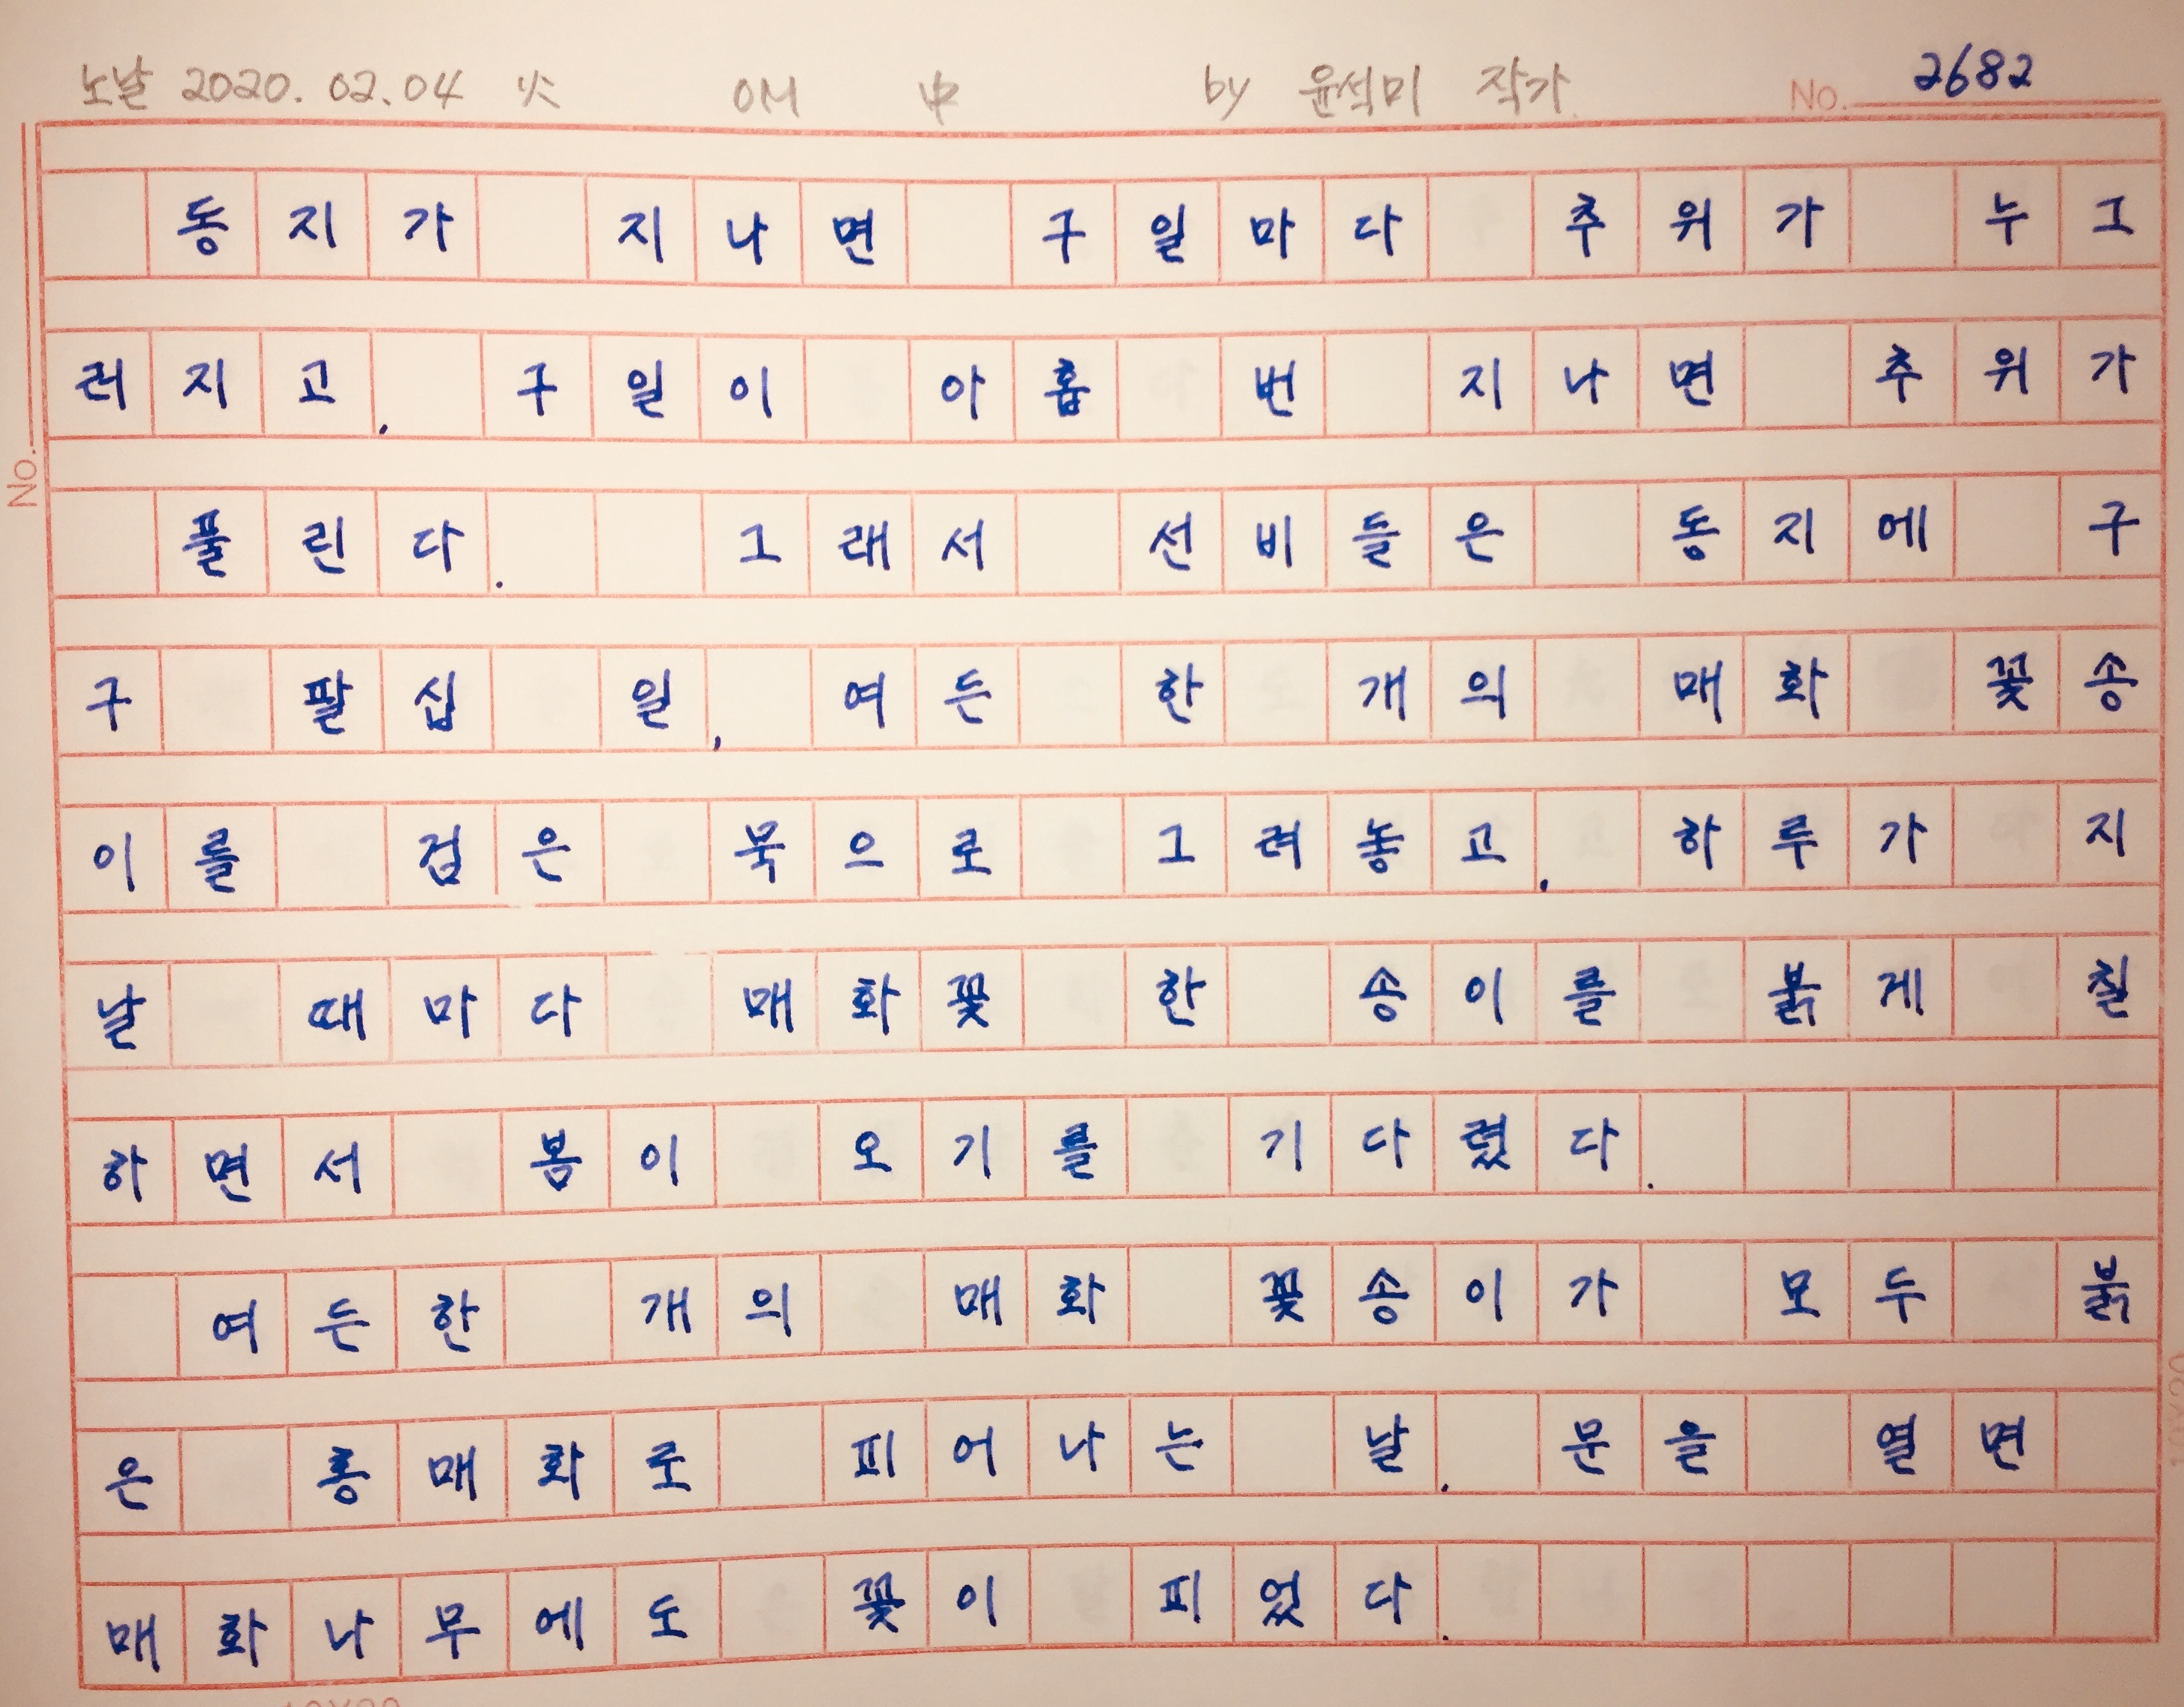 노날 2020. 02. 04 火 OM 中 by 윤석미 작가 No. 2682
동지가 지나면 구일마다 추위가 누그
러지고, 구일이 아홉 번 지나면 추위가
풀린다. 그래서 선비들은 동지에 구
구 팔십 일, 여든 한 개의 매화 꽃송
이를 검은 묵으로 그려놓고, 하루가 지
날 때마다 매화꽃 한 송이를 붉게 칠
하면서 봄이 오기를 기다렸다.
여든한 개의 매화 꽃송이가 모두 붉
은 홍매화로 피어나는 날, 문을 열면
매화나무에도 꽃이 피었다.
No.